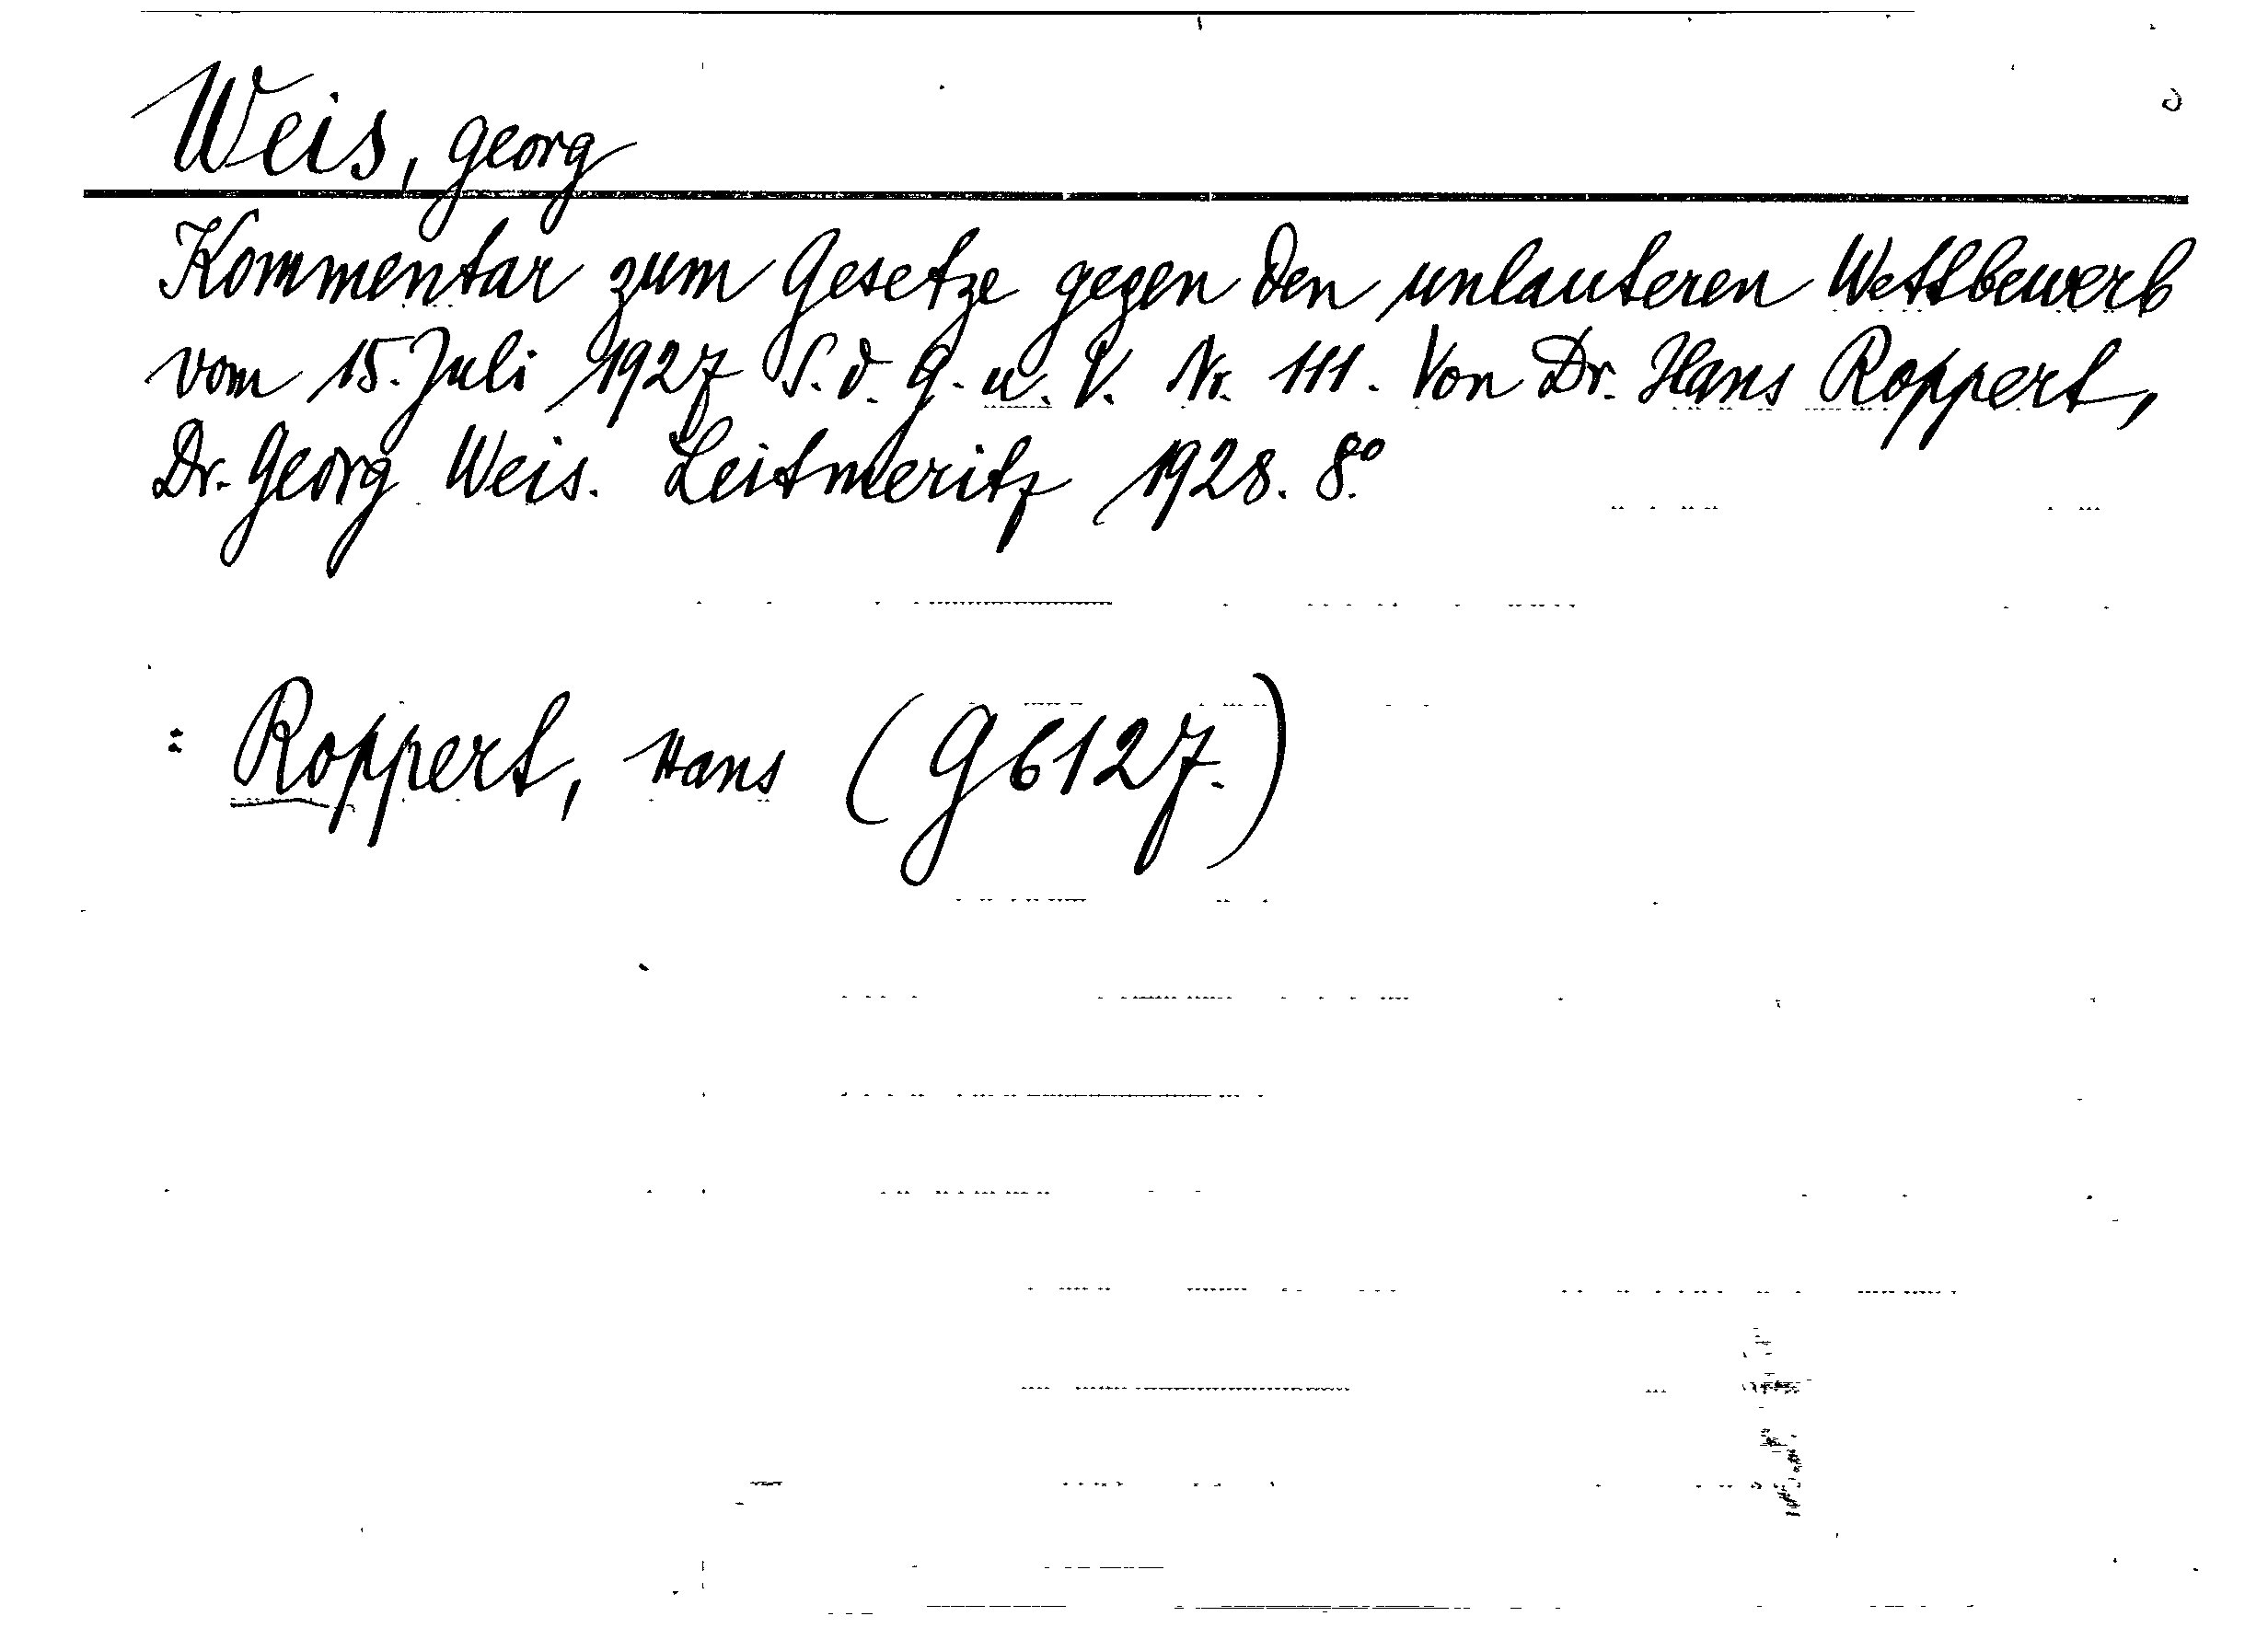 Weis, Georg
Kommentar zum Gesetze gegen den unlauteren Wettbewerb
vom 15. Juli 1927 S. d. G. u. V. Nr. 111. Von Dr. Hans Roppert,
Dr. Georg Weis. Leitmeritz 1928. 8°.
= Roppert, Hans (G 6127.)